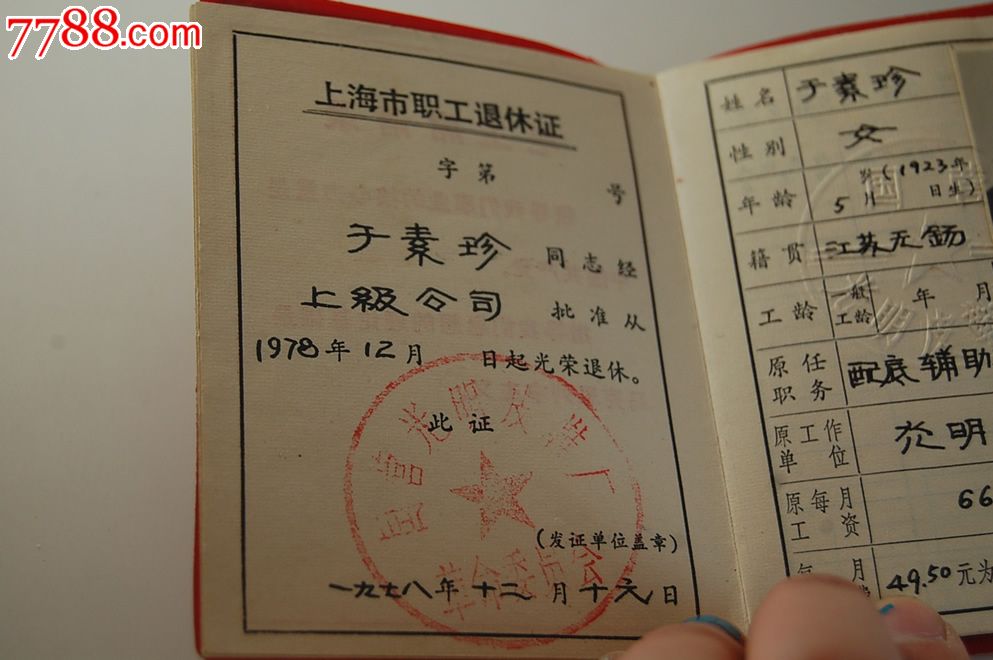 7788.com
上海市职工退休证
字第 号
于素珍 同志经
上級公司 批准从
1978年12月 日起光荣退休。
此证
(发证单位盖章)
一九七八年十二月十六日
姓名 于素珍
性别 女
年龄 岁(1923年
5月 日生)
籍贯 江苏无锡
工龄 一般工龄 年 月
原任职务 配底辅助
原工作单位 光明
原每月工资 66
每 月
49.50元为